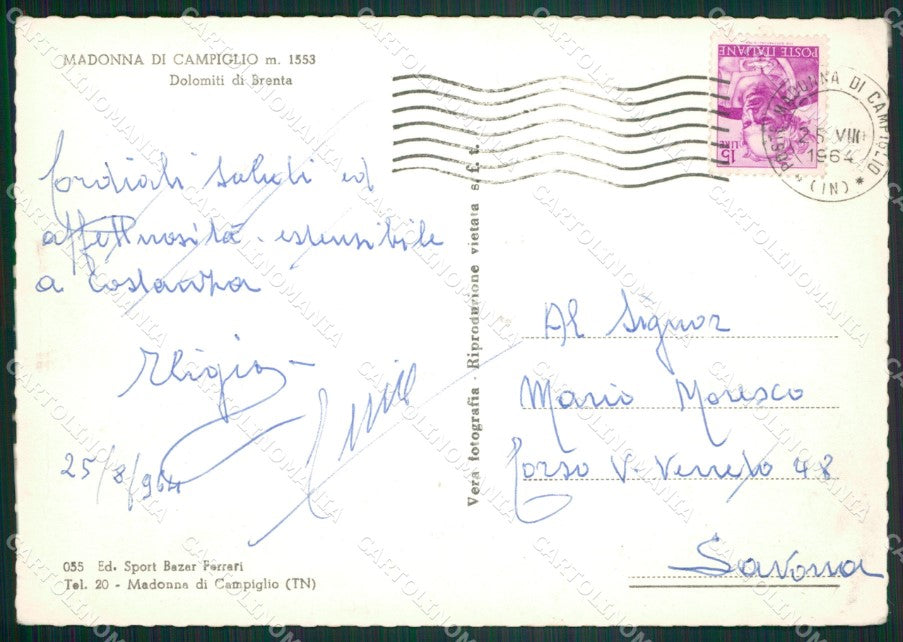 MADONNA DI CAMPIGLIO m. 1553
Dolomiti di Brenta
Cordiali saluti ed
affettuosità estensibile
a Costanza
25/8/964
035 Ed. Sport Bazar Ferrari
Tel. 20 - Madonna di Campiglio (TN)
Vera fotografia - Riproduzione vietata s. f. t.
POSTE ITALIANE
LIRE 15
POSTE MADONNA DI CAMPIGLIO
25 VIII
1964
* (TN) *
Al Signor
Mario Moresco
Corso V. Veneto 48
Savona
CARTOLINOMANIA